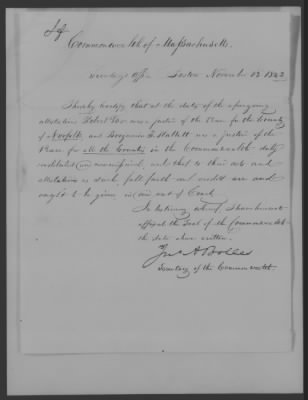 Commonwealth of Massachusetts.
Secretary's Office Boston November 12 1843
I hereby Certify that at the date of the foregoing
attestations Robert was a Justice of the Peace for the County
of Norfolk and Benjamin F. Hallett was a Justice of the
Peace for all the Counties in the Commonwealth duly
constituted and commissioned, and that to their acts and
attestations as such, full faith and credit are and
ought to be given in and out of Court.
In testimony whereof I have hereunto
affixed the Seal of the Commonwealth
the date above written.
Jno A Bolles
Secretary of the Commonwealth